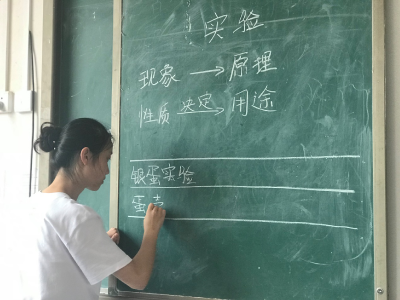 实验
现象 → 原理
性质 决定→ 用途
银蛋实验
蛋壳